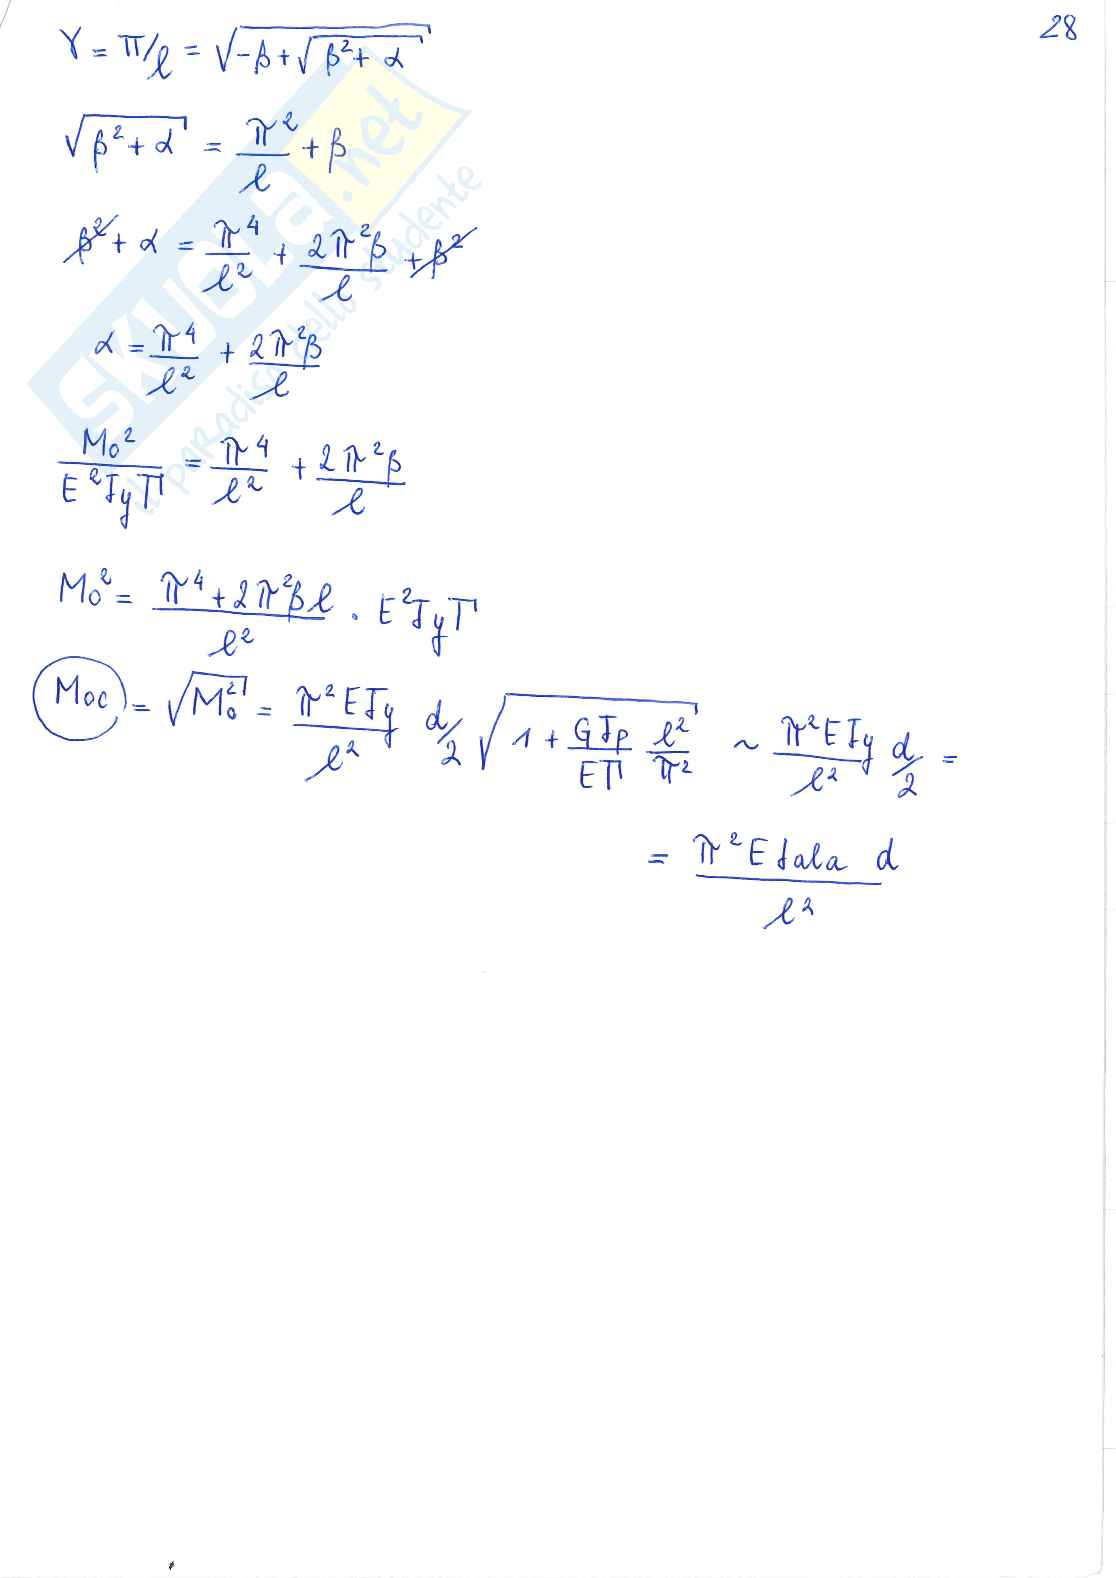 28
γ = π/ℓ = √(-β + √(β² + α))
√(β² + α) = π²/ℓ + β
β² + α = π⁴/ℓ² + 2π²β/ℓ + β²
α = π⁴/ℓ² + 2π²β/ℓ
M₀²/E²JyΓ = π⁴/ℓ² + 2π²β/ℓ
M₀² = (π⁴ + 2π²βℓ)/ℓ² · E²JyΓ
M₀c = √M₀² = π²EJy/ℓ² d/2 √(1 + GJp/EΓ ℓ²/π²) ~ π²EJy/ℓ² d/2 =
= π²EJala d/ℓ²
SKUOLA.net
il paradiso dello studente